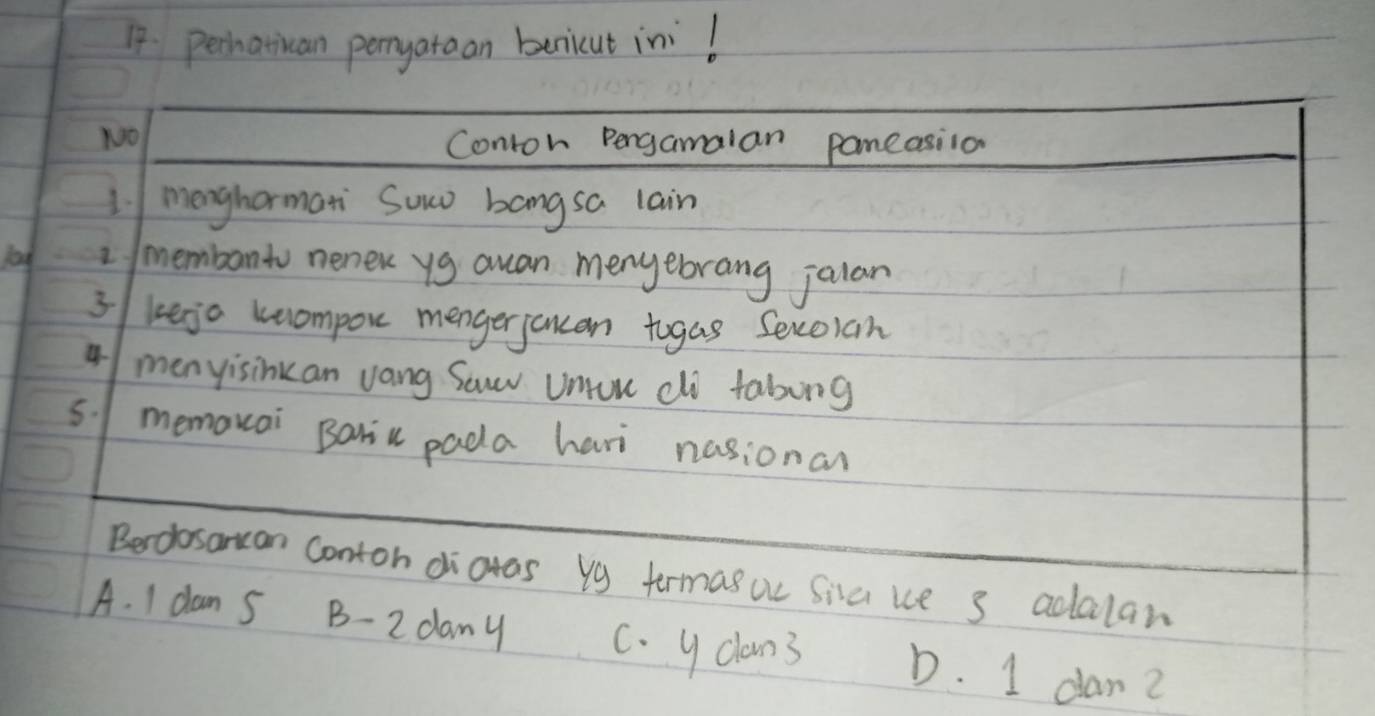 17. Perhatikan pernyataan berikut ini !
No Contoh Pengamalan pancasila
1. menghormati Suku bangsa lain
2. membantu nenek yg akan menyebrang jalan
3. kerja kelompok mengerjakan tugas Sekolah
4. menyisihkan uang Saku Untuk di tabung
5. memakai Batik pada hari nasional
Berdasarkan Contoh diatas yg termasuk sila ke 3 adalah
A. 1 dan 5 B- 2 dan 4 C. 4 dan 3 D. 1 dan 2